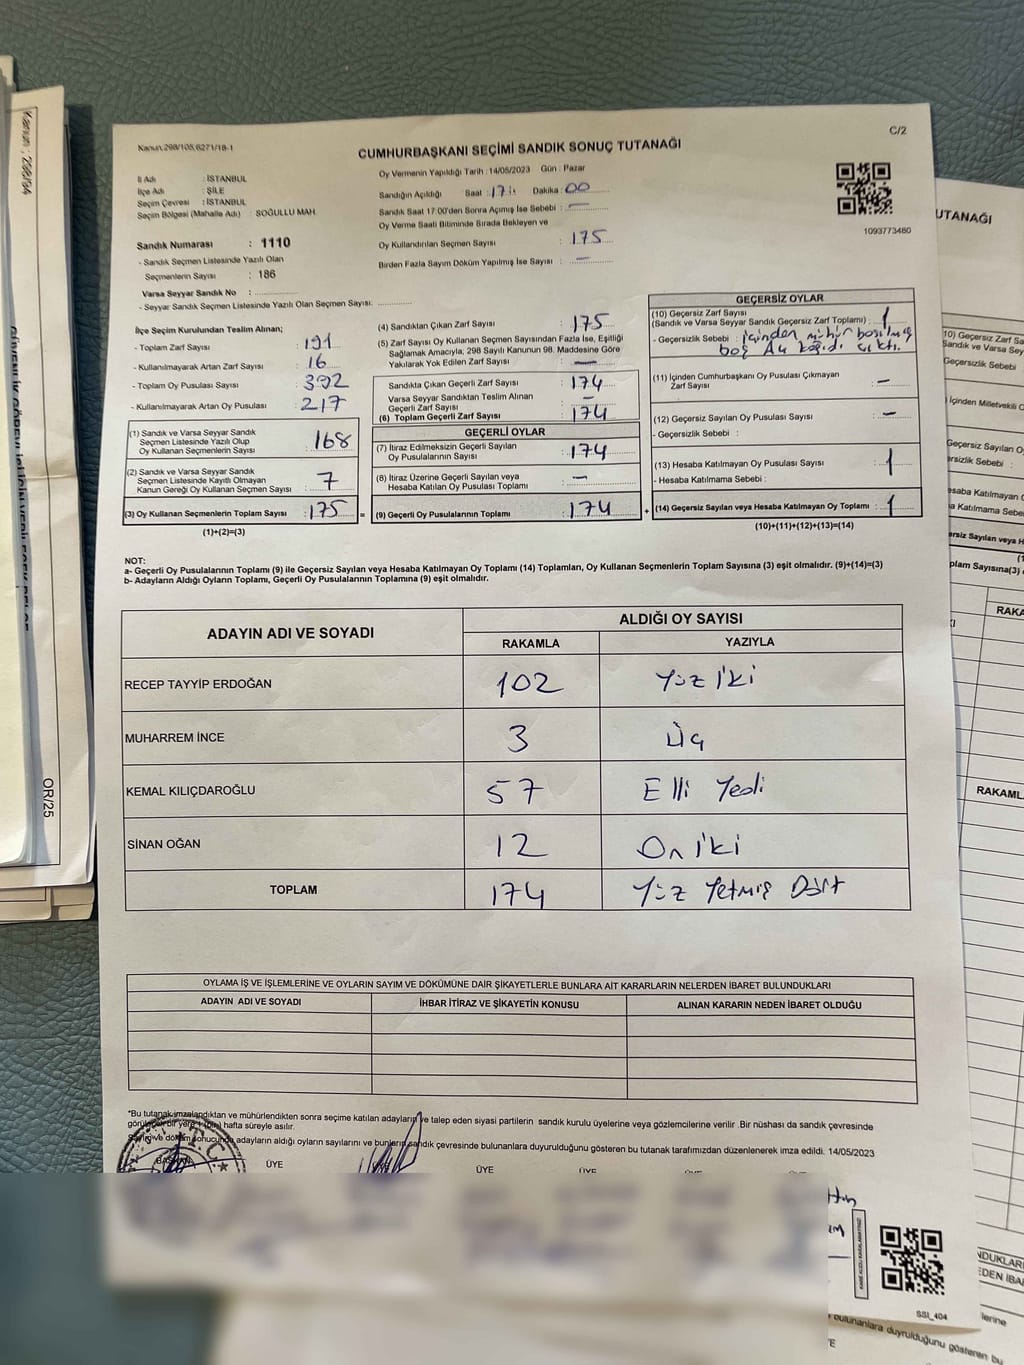 C/2
Kanun:298/105,6271/18-1
CUMHURBAŞKANI SEÇİMİ SANDIK SONUÇ TUTANAĞI
İl Adı : İSTANBUL
İlçe Adı : ŞİLE
Seçim Çevresi : İSTANBUL
Seçim Bölgesi (Mahalle Adı) SOĞULLU MAH.
Sandık Numarası : 1110
- Sandık Seçmen Listesinde Yazılı Olan
Seçmenlerin Sayısı : 186
Varsa Seyyar Sandık No :
- Seyyar Sandık Seçmen Listesinde Yazılı Olan Seçmen Sayısı:
Oy Vermenin Yapıldığı Tarih : 14/05/2023 Gün : Pazar
Sandığın Açıldığı Saat : 17 Dakika : 00
Sandık Saat 17:00'den Sonra Açımış İse Sebebi : —
Oy Verme Saati Bitiminde Sırada Bekleyen ve
Oy Kullandırılan Seçmen Sayısı : 175
Birden Fazla Sayım Döküm Yapılmış İse Sayısı : —
1093773460
İlçe Seçim Kurulundan Teslim Alınan;
- Toplam Zarf Sayısı : 191
- Kullanılmayarak Artan Zarf Sayısı : 16
- Toplam Oy Pusulası Sayısı : 392
- Kullanılmayarak Artan Oy Pusulası : 217
(1) Sandık ve Varsa Seyyar Sandık
Seçmen Listesinde Yazılı Olup
Oy Kullanan Seçmenlerin Sayısı : 168
(2) Sandık ve Varsa Seyyar Sandık
Seçmen Listesinde Kayıtlı Olmayan
Kanun Gereği Oy Kullanan Seçmen Sayısı : 7
(3) Oy Kullanan Seçmenlerin Toplam Sayısı : 175 =
(1)+(2)=(3)
(4) Sandıktan Çıkan Zarf Sayısı : 175
(5) Zarf Sayısı Oy Kullanan Seçmen Sayısından Fazla İse, Eşitliği
Sağlamak Amacıyla, 298 Sayılı Kanunun 98. Maddesine Göre
Yakılarak Yok Edilen Zarf Sayısı : —
Sandıkta Çıkan Geçerli Zarf Sayısı : 174
Varsa Seyyar Sandıktan Teslim Alınan
Geçerli Zarf Sayısı : —
(6) Toplam Geçerli Zarf Sayısı : 174
GEÇERLİ OYLAR
(7) İtiraz Edilmeksizin Geçerli Sayılan
Oy Pusulalarının Sayısı : 174
(8) İtiraz Üzerine Geçerli Sayılan veya
Hesaba Katılan Oy Pusulası Toplamı : —
(9) Geçerli Oy Pusulalarının Toplamı : 174 +
GEÇERSİZ OYLAR
(10) Geçersiz Zarf Sayısı
(Sandık ve Varsa Seyyar Sandık Geçersiz Zarf Toplamı) : 1
- Geçersizlik Sebebi : içinden mühür basılmış
boş A4 kağıdı çıktı.
(11) İçinden Cumhurbaşkanı Oy Pusulası Çıkmayan
Zarf Sayısı : —
(12) Geçersiz Sayılan Oy Pusulası Sayısı : —
- Geçersizlik Sebebi :
(13) Hesaba Katılmayan Oy Pusulası Sayısı : 1
- Hesaba Katılmama Sebebi :
(14) Geçersiz Sayılan veya Hesaba Katılmayan Oy Toplamı : 1
(10)+(11)+(12)+(13)=(14)
NOT:
a- Geçerli Oy Pusulasının Toplamı (9) ile Geçersiz Sayılan veya Hesaba Katılmayan Oy Toplamı (14) Toplamları, Oy Kullanan Seçmenlerin Toplam Sayısına (3) eşit olmalıdır. (9)+(14)=(3)
b- Adayların Aldığı Oyların Toplamı, Geçerli Oy Pusulalarının Toplamına (9) eşit olmalıdır.
ADAYIN ADI VE SOYADI ALDIĞI OY SAYISI
RAKAMLA YAZIYLA
RECEP TAYYİP ERDOĞAN 102 Yüz İki
MUHARREM İNCE 3 Üç
KEMAL KILIÇDAROĞLU 57 Elli Yedi
SİNAN OĞAN 12 On iki
TOPLAM 174 Yüz Yetmiş Dört
OYLAMA İŞ VE İŞLEMLERİNE VE OYLARIN SAYIM VE DÖKÜMÜNE DAİR ŞİKAYETLERLE BUNLARA AİT KARARLARIN NELERDEN İBARET BULUNDUKLARI
ADAYIN ADI VE SOYADI İHBAR İTİRAZ VE ŞİKAYETİN KONUSU ALINAN KARARIN NEDEN İBARET OLDUĞU
*Bu tutanak imzalandıktan ve mühürlendikten sonra seçime katılan adayların ve talep eden siyasi partilerin sandık kurulu üyelerine veya gözlemcilerine verilir. Bir nüshası da sandık çevresinde
görülecek bir yere 1 (bir) hafta süreyle asılır.
Sayım ve döküm sonucunda adayların aldığı oyların sayılarını ve bunların sandık çevresinde bulunanlara duyurulduğunu gösteren bu tutanak tarafımızdan düzenlenerek imza edildi. 14/05/2023
BAŞKAN ÜYE ÜYE ÜYE
T.C.
SSI_404
OR/25
Kanun : 298/94
UTANAĞI
bulunanlara duyurulduğunu gösteren bu